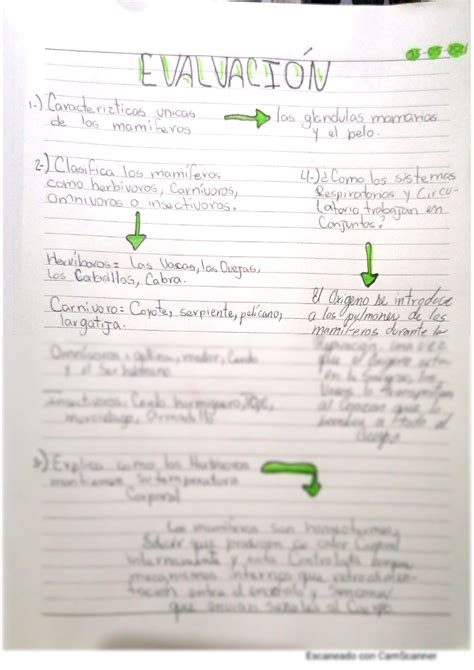 EVALUACIÓN
1-) Caracterizticas unicas
de los mamiferos
las glandulas mamarias
y el pelo.
2-) Clasifica los mamiferos
como herbivoros, Carnivoros,
Omnivoros o insectivoros.
Hervíboros = Las Vacas, las Ovejas,
Los Caballos, Cabra.
Carnivoro = Coyote, serpiente, pelicano,
largatija.
Omnivoros =
y el Ser humano
Insectivoros: Cerdo hormiguero,
murcielago, Armadillo
4-) ¿Como los sistemas
Respiratorios y Circu-
latorio trabajan en
Conjuntos?
El Oxigeno se introduce
a los pulmones de los
mamiferos durante la
Respiración, una vez
que el Oxigeno esta
en la Sangre, los
al Corazon que lo
bombea a todo el
Cuerpo
3-) Explica como los Herbivoros
mantienen su temperatura
Corporal
Los mamiferos son
que producen su calor Corporal
internamente y esta
mecanismos internos que
entre el encefalo y
que envian señales al Cuerpo.
Escaneado con CamScanner